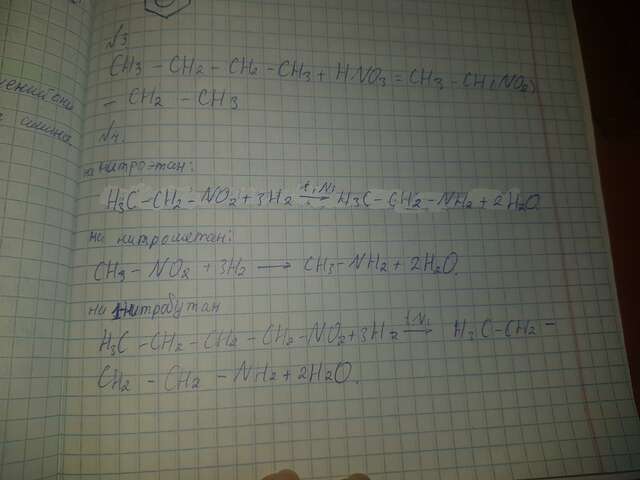 №3
CH3 - CH2 - CH2 - CH3 + HNO3 = CH3 - CH(NO2)
- CH2 - CH3
№4.
на нитроэтан:
H3C-CH2-NO2+3H2 t,Ni → H3C-CH2-NH2+2H2O
на нитрометан:
CH3-NO2 +3H2 → CH3-NH2+2H2O.
на 1нитробутан
H3C-CH2-CH2-CH2-NO2+3H2 t,Ni → H3C-CH2-
CH2 - CH2 - NH2+2H2O.